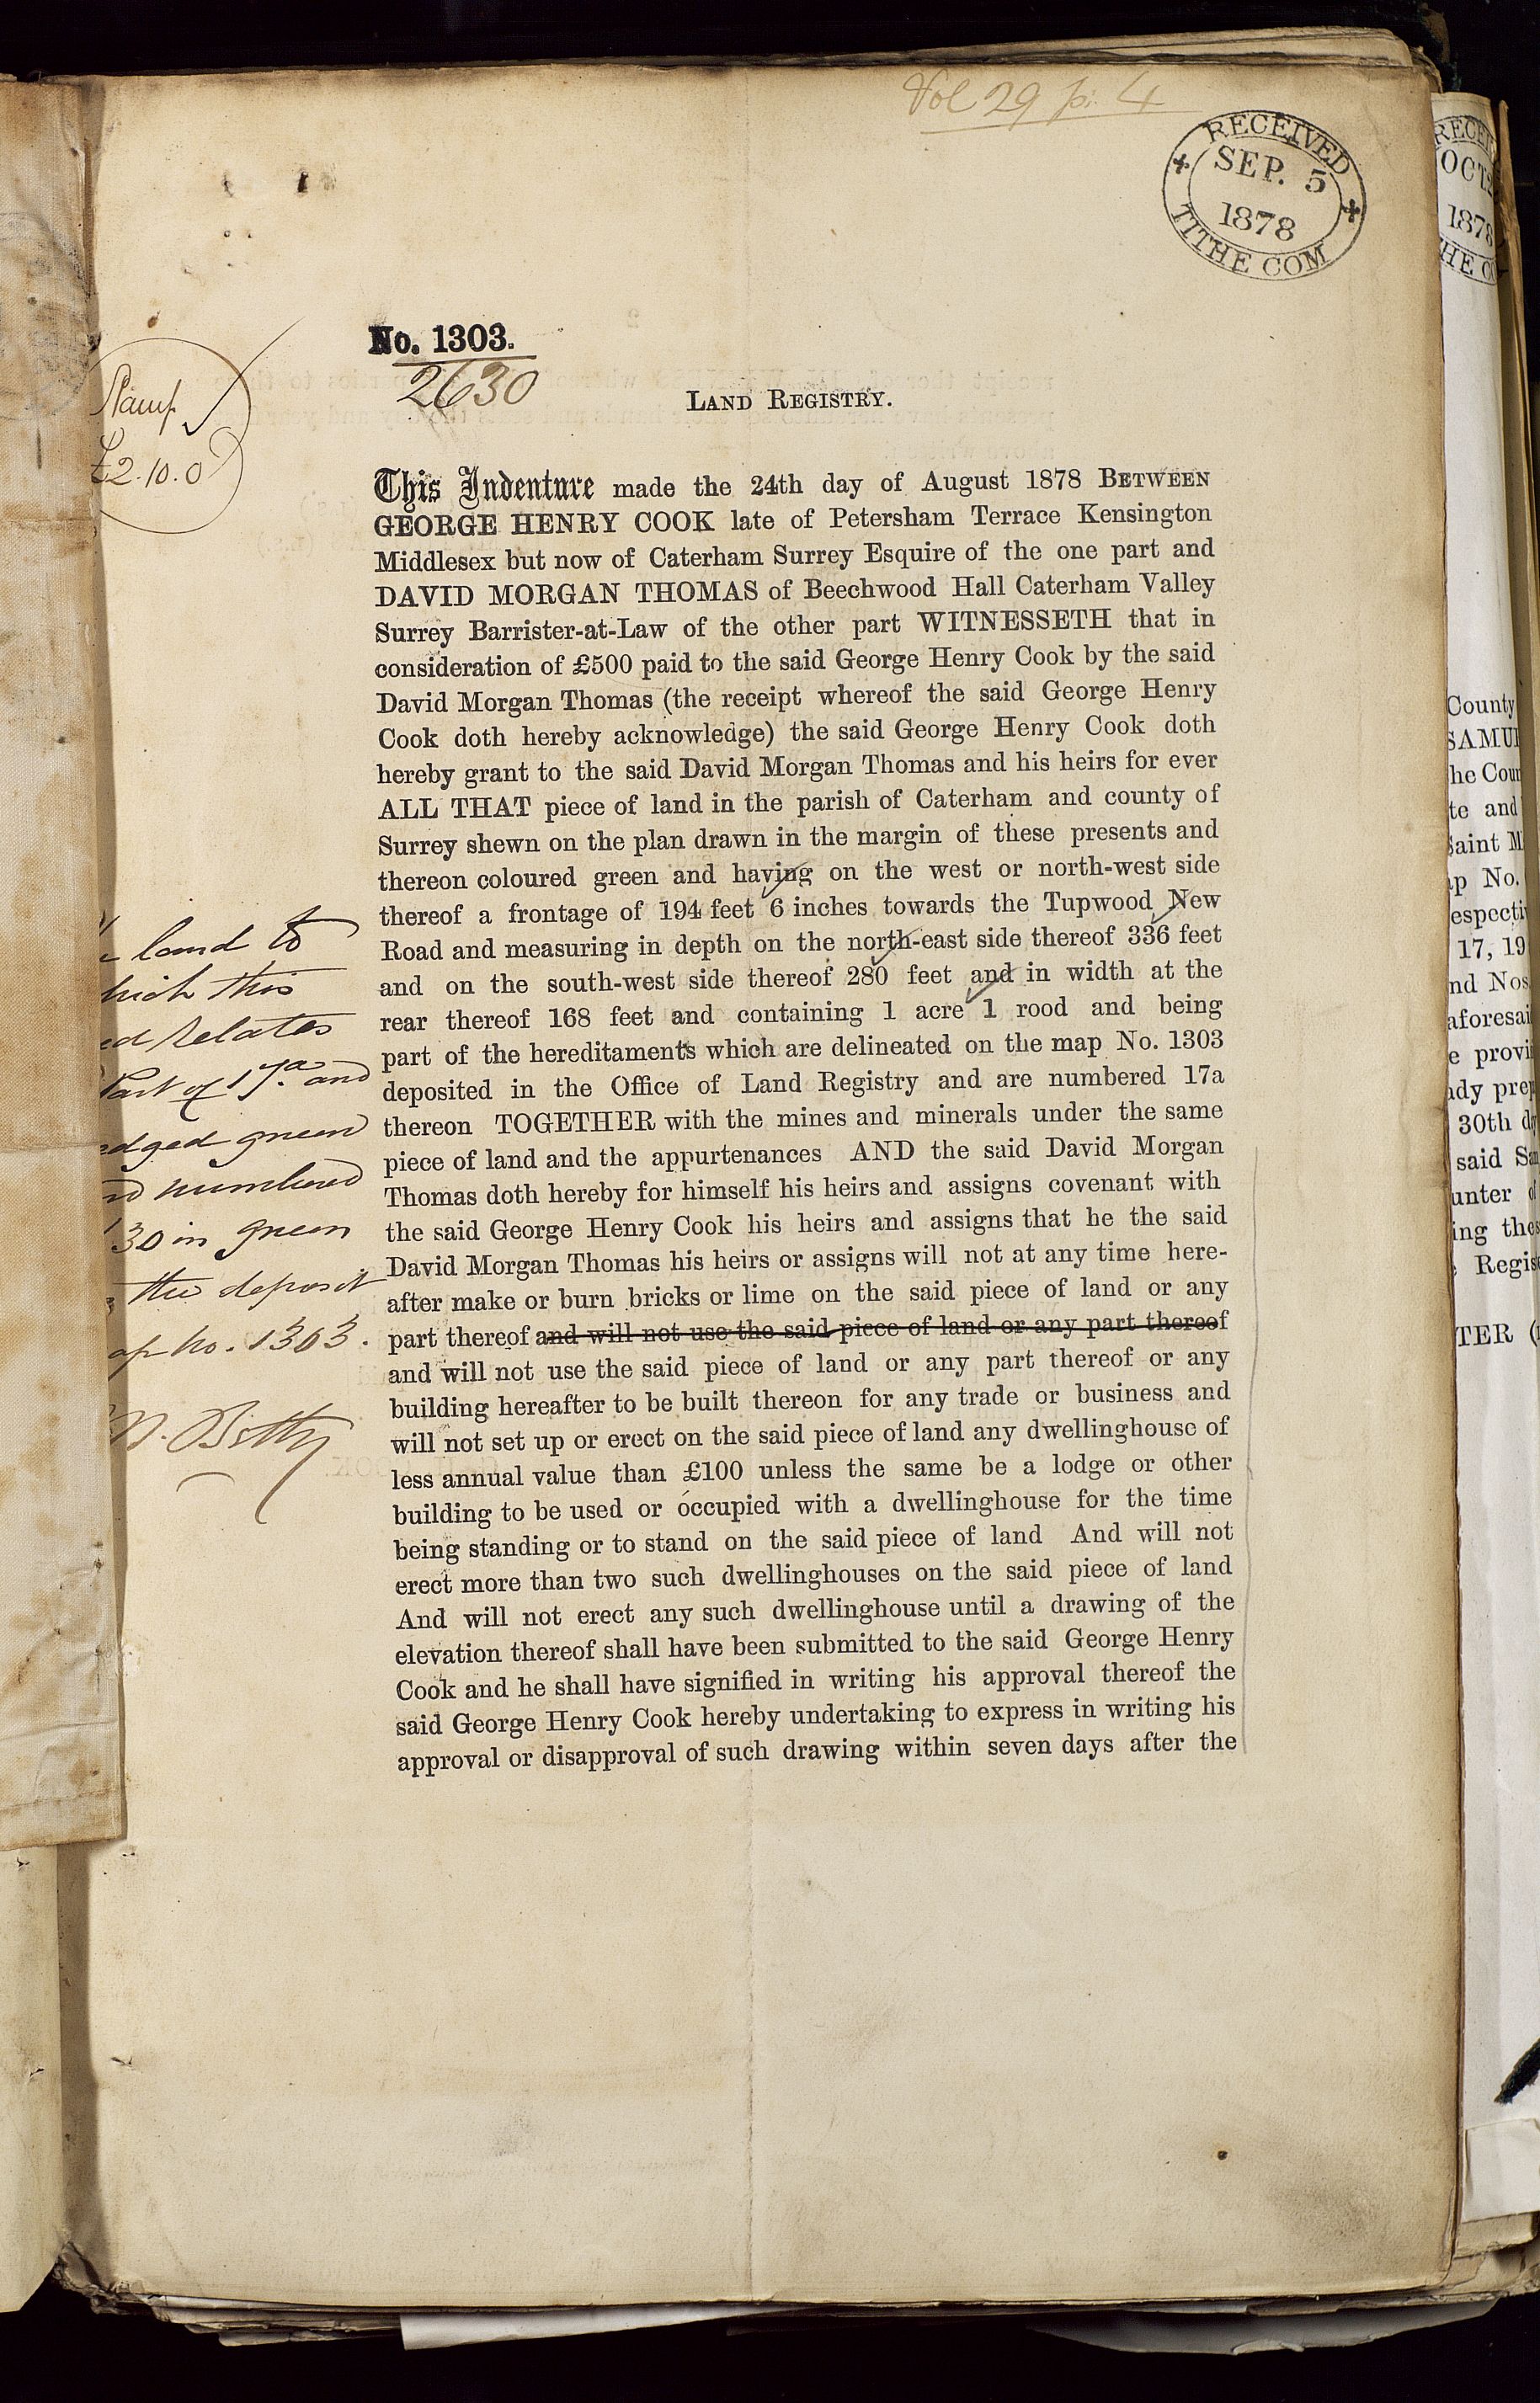 Vol 29 p. 4
RECEIVED
SEP. 5
1878
TITHE COM
No. 1303.
2630
LAND REGISTRY.
Stamp
£2.10.0
This Indenture made the 24th day of August 1878 BETWEEN
GEORGE HENRY COOK late of Petersham Terrace Kensington
Middlesex but now of Caterham Surrey Esquire of the one part and
DAVID MORGAN THOMAS of Beechwood Hall Caterham Valley
Surrey Barrister-at-Law of the other part WITNESSETH that in
consideration of £500 paid to the said George Henry Cook by the said
David Morgan Thomas (the receipt whereof the said George Henry
Cook doth hereby acknowledge) the said George Henry Cook doth
hereby grant to the said David Morgan Thomas and his heirs for ever
ALL THAT piece of land in the parish of Caterham and county of
Surrey shewn on the plan drawn in the margin of these presents and
thereon coloured green and having on the west or north-west side
thereof a frontage of 194 feet 6 inches towards the Tupwood New
Road and measuring in depth on the north-east side thereof 336 feet
and on the south-west side thereof 280 feet and in width at the
rear thereof 168 feet and containing 1 acre 1 rood and being
part of the hereditaments which are delineated on the map No. 1303
deposited in the Office of Land Registry and are numbered 17a
thereon TOGETHER with the mines and minerals under the same
piece of land and the appurtenances AND the said David Morgan
Thomas doth hereby for himself his heirs and assigns covenant with
the said George Henry Cook his heirs and assigns that he the said
David Morgan Thomas his heirs or assigns will not at any time here-
after make or burn bricks or lime on the said piece of land or any
part thereof and will not use the said piece of land or any part thereof
and will not use the said piece of land or any part thereof or any
building hereafter to be built thereon for any trade or business and
will not set up or erect on the said piece of land any dwellinghouse of
less annual value than £100 unless the same be a lodge or other
building to be used or occupied with a dwellinghouse for the time
being standing or to stand on the said piece of land And will not
erect more than two such dwellinghouses on the said piece of land
And will not erect any such dwellinghouse until a drawing of the
elevation thereof shall have been submitted to the said George Henry
Cook and he shall have signified in writing his approval thereof the
said George Henry Cook hereby undertaking to express in writing his
approval or disapproval of such drawing within seven days after the
land to
hich this
ed relates
Part of 17a and
edged green
numbered
30 in green
the deposit
ap No. 1303.
OCT
1878
County
SAMU
he Coun
te and
Saint M
p No.
especti
17, 19
nd Nos
aforesai
e provi
ady prep
30th d
said Sa
unter
ing thes
Regis
TER